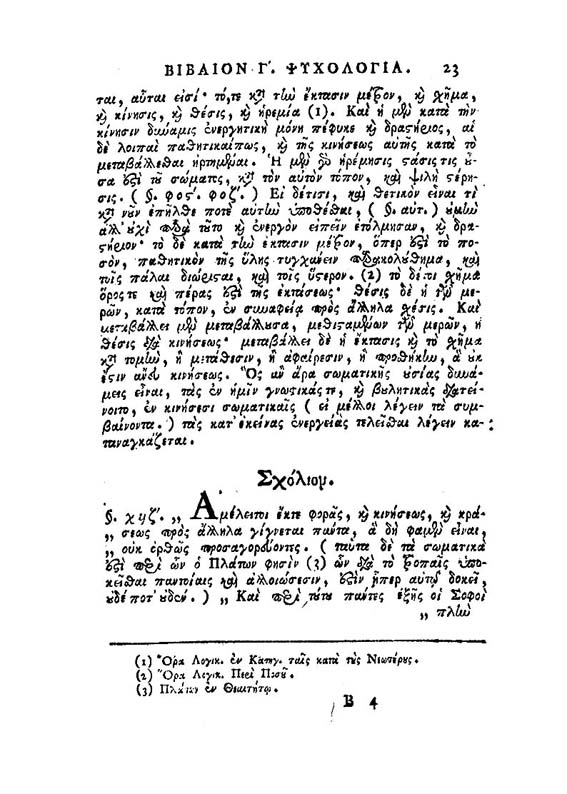 ΒΙΒΛΙΟΝ Γ΄. ΨΥΧΟΛΟΓΙΑ. 23
ται, αὗται εἰσί· τό,τε κατὰ τὴν ἔκτασιν μέγεθον, καὶ σχῆμα,
καὶ κίνησις, καὶ θέσις, καὶ ἠρεμία (1). Καὶ ἡ μὲν κατὰ τὴν
κίνησιν δύναμις ἐνεργητικὴ μόνη πέφυκε καὶ δραστήριος, αἱ
δὲ λοιπαὶ παθητικαίπως, καὶ τῆς κινήσεως αὐτῆς κατὰ τὸ
μεταβάλλεσθαι ἠρτημέναι. Ἡ μὲν γὰρ ἠρέμησις στάσις τις οὖ-
σα ἐστὶ τοῦ σώματος, κατὰ τὸν αὐτὸν τόπον, καὶ ψιλὴ στέρη-
σις. (§. φοςʹ. φοζʹ.) Εἰ δέτισι, καὶ θετικὸν εἶναι τὶ
κατὰ νοῦν ἐπῆλθέ ποτε αὐτὴν ὑποθέσθαι, (§. αὐτ.)
ἀλλ' οὐχὶ τοῦτο καὶ ἐνεργὸν εἰπεῖν ἐτόλμησαν, καὶ δρα-
στήριον· τὸ δὲ κατὰ τὴν ἔκτασιν μέγεθον, ὅπερ ἐστὶ τὸ πο-
σὸν, παθητικὸν τῆς ὕλης τυγχάνειν παρακολούθημα, καὶ
τοῖς πάλαι διώρισται, καὶ τοῖς ὕστερον. (2) τὸ δέτοι σχῆμα
ὅρος τε καὶ πέρας ἐστὶ τῆς ἐκτάσεως· θέσις δὲ ἡ τῶν με-
ρῶν, κατὰ τόπον, ἐν συναφείᾳ πρὸς ἄλληλα σχέσις. Καὶ
μεταβάλλει μὲν μεταβάλλουσα, μεθισταμένων τῶν μερῶν, ἡ
θέσις διὰ κινήσεως· μεταβάλλει δὲ ἡ ἔκτασις καὶ τὸ σχῆμα
κατὰ τομὴν, ἢ μετάθεσιν, ἢ ἀφαίρεσιν, ἢ προσθήκην, ἃ οὐκ
ἔστιν ἄνευ κινήσεως. Ὃς ἂν ἄρα σωματικῆς οὐσίας δυνά-
μεις εἶναι, τὰς ἐν ἡμῖν γνωστικάς τε, καὶ βουλητικὰς διατεί-
νοιτο, ἐν κινήσεσι σωματικαῖς (εἰ μέλλοι λέγειν τὰ συμ-
βαίνοντα.) τὰς κατ' ἐκείνας ἐνεργείας τελεῖσθαι λέγειν κα-
ταναγκάζεται.
Σχόλιον.
§. χιζʹ. „ Ἀμέλειτοι ἔκτε φορᾶς, καὶ κινήσεως, καὶ κρά-
„ σεως πρὸς ἄλληλα γίγνεται πάντα, ἃ δή φαμεν εἶναι,
„ οὐκ ὀρθῶς προσαγορεύοντες. (ταῦτα δὲ τὰ σωματικὰ
ἐστὶ περὶ ὧν ὁ Πλάτων φησὶν (3) ὧν διὰ τὸ τροπαῖς ὑπο-
κεῖσθαι παντοίαις καὶ ἀλλοιώσεσιν, ἐστὶν ᾗπερ αὐτῷ δοκεῖ,
οὐδέποτ' οὐδέν.) „ Καὶ περὶ τούτου πάντες ἑξῆς οἱ Σοφοὶ
„ πλὴν
(1) Ὅρα Λογικ. ἐν Κατηγ. ταῖς κατὰ τοὺς Νεωτέρους.
(2) Ὅρα Λογικ. Περὶ Ποσοῦ.
(3) Πλάτων ἐν Θεαιτήτῳ.
Β 4